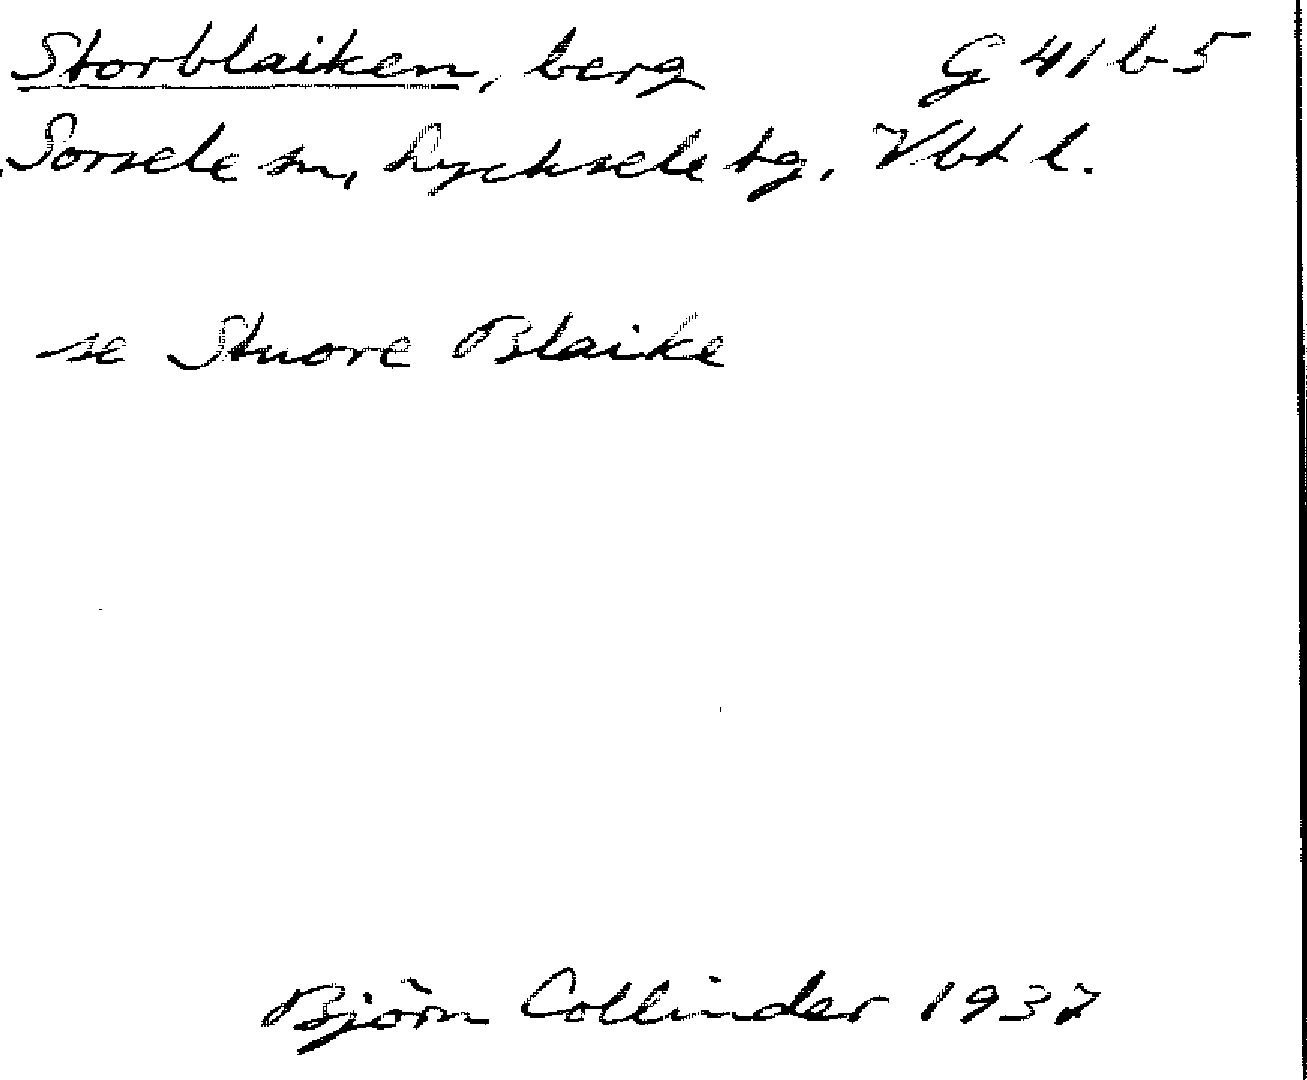 Storblaiken, berg G 41 b 5
Sorsele sn, Lycksele tg, Vbt l.
se Stuore Blaike
Björn Collinder 1937